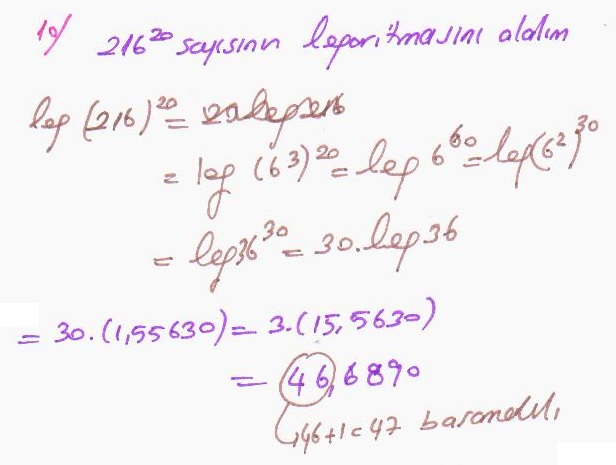 19/ 216²⁰ sayısının logaritmasını alalım
log (216)²⁰ =
= log (6³)²⁰ = log 6⁶⁰ = log(6²)³⁰
= log36³⁰ = 30.log36
= 30.(1,55630) = 3.(15,5630)
= 46,6890
46+1=47 basamaklı